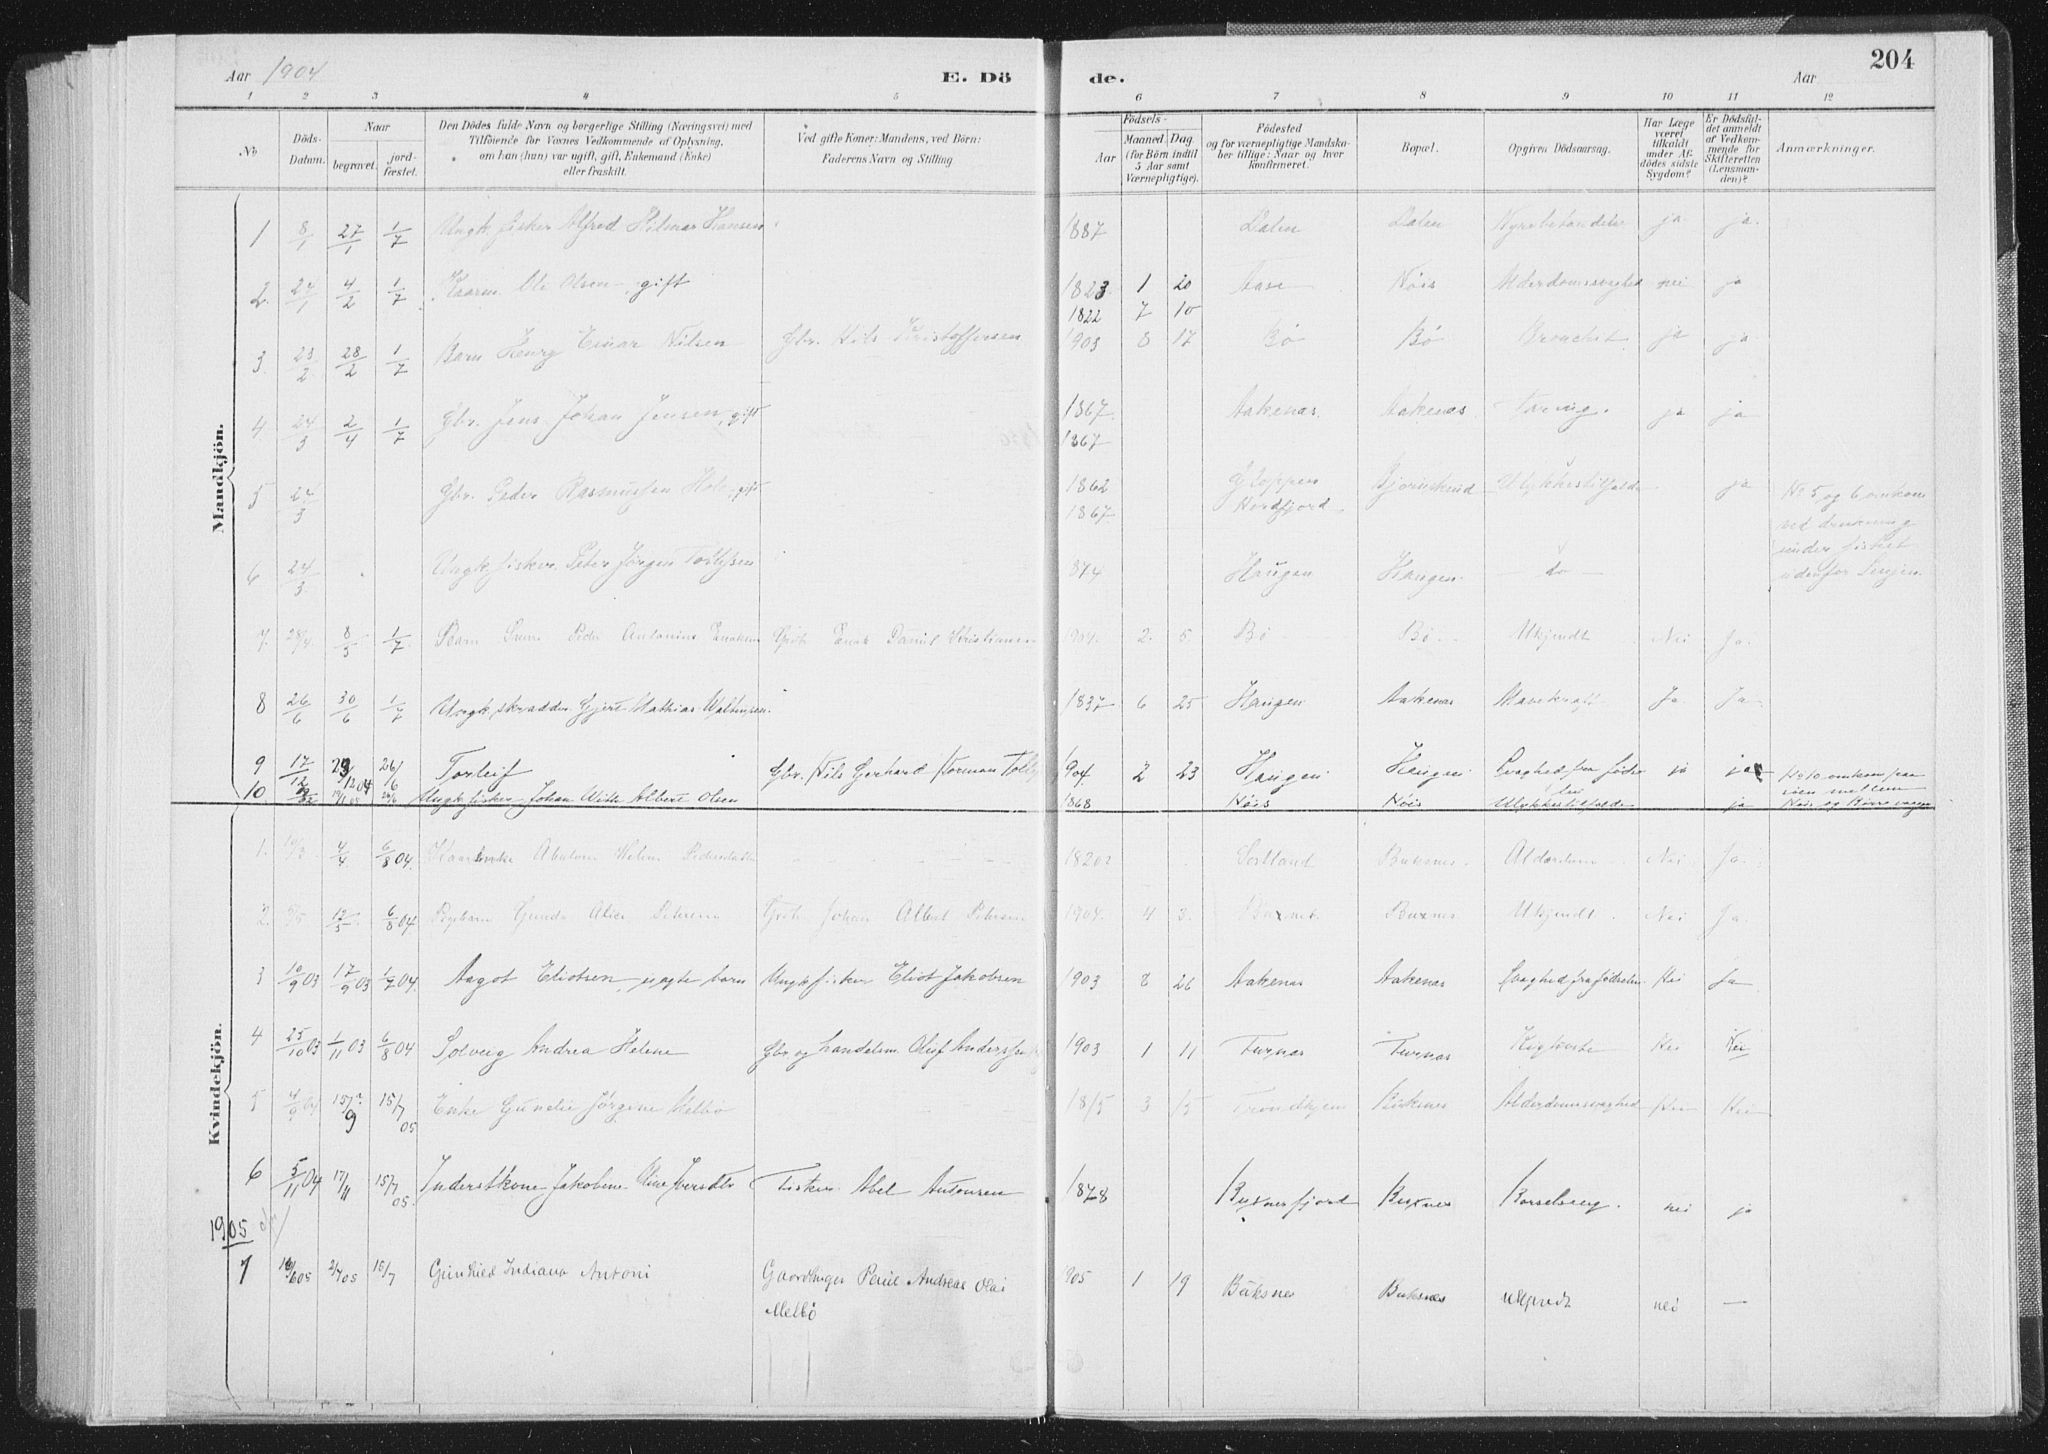 Aar 1904 E. Dö
de. Aar 204
1 2 3 4 5 6 7 8 9 10 11 12
No
Döds-
Datum.
Naar
begravet.
jord-
fæstet.
Den Dödes fulde Navn og borgerlige Stilling (Næringsvei) med
Tilföiende for Voxnes Vedkommende af Oplysning,
om han (hun) var ugift, gift, Enkemand (Enke)
eller fraskilt.
Ved gifte Koner: Mandens, ved Börn:
Faderens Navn og Stilling
Födsels-
Aar
Maaned Dag
(for Börn indtil
5 Aar samt
Værnepligtige).
Födested
og for værnepligtige Mandska-
ber tillige: Naar og hvor
konfirmeret.
Bopæl.
Opgiven Dödsaarsag.
Har Læge
været
tilkaldt
under Af-
dödes sidste
Sygdom?
Er Dödsfal-
det anmeldt
af Vedkom-
mende for
Skifteretten
(Lensman-
den)?
Anmærkninger.
Mandkjön.
1 8/1 27/1 1/7 Ungk. fisker Alfred Hilmar Hansen 1887 Dalen Dalen ja ja
2 24/1 4/2 1/7 Ole Olsen gift 1823 1 20 Aase Nöis Alderdomssvaghed nei ja
1822 7 10
3 23/2 28/2 1/7 Barn Henry Einar Nilsen Gbr. Nils Kristoffersen 1903 8 17 Bö Bö Bronchit ja ja
4 24/3 2/4 1/7 Gbr. Jens Johan Jensen, gift 1867 Aakenes Aakenes Tæring ja ja
1867
5 24/3 Gbr. Peder Rasmussen gift 1862 Gloppen Ulykkestilfælde ja No 5 og 6 omkom
1867 Nordfjord ved drukning
6 24/3 Ungk. fisker Peter Jörgen 1874 Haugen Haugen do under fisket
udenfor Senjen.
7. 28/4 8/5 1/7 Barn Peder Antonius Daniel Kristiansen 1904. 2. 5 Bö Bö Ukjendt Nei Ja.
8 26/6 30/6 1/7 Ungk. skrædder Mathias 1837 6 25 Haugen Aakenes Mavekræft Ja Ja
9 17/12 23/12 04 26/6 Torleif Gbr. Nils Gerhard Norman 1904. 2 23 Haugen Haugen Svaghed fra födse ja ja No 10 omkom paa
10 Ungk. fisker Johan Albert Olsen 1868 Nöis Nöis Ulykkestilfælde ja söen mellem
Nöis og
Kvindekjön.
1. 4/4 6/8 04. 1820 Sortland Buksnes Alderdom Nei Ja.
2. 12/5 6/8 04 Alice Johan Albert 1904. 4 3. Buxnes Buxnes Ukjendt Nei Ja.
3 10/9 03 17/9 03 1/7 04. Aagot Eliotsen, uægte barn Ungk. fisker Eliot Jakobsen 1903 8 26 Aakenes Aakenes Svaghed fra födselen Nei Ja
4 25/10 03 1/11 03 6/8 04 Solveig Andrea Helene Gbr. og handelsm. Olaf Anderssen 1903 1 11 Kighoste Nei Nei
5 4/9 04 15/9 15/7 05 Enke Jörgine Melbö 1815 3 15 Trondhjem Buksnes Alderdomssvaghed Nei Nei
6 5/11 04 17/11 15/7 05. Inderstkone Jakobine Fisker Abel Antonsen 1878 Buxnesfjord Buxnes Barselseng. nei ja
1905
7 16/6 05 2/7 05 15/7 Gunhild Indiana Antoni Gaardbruger Paul Andreas Olai 905 1 19 Buksnes Buksnes ukjendt nei —
Melbö